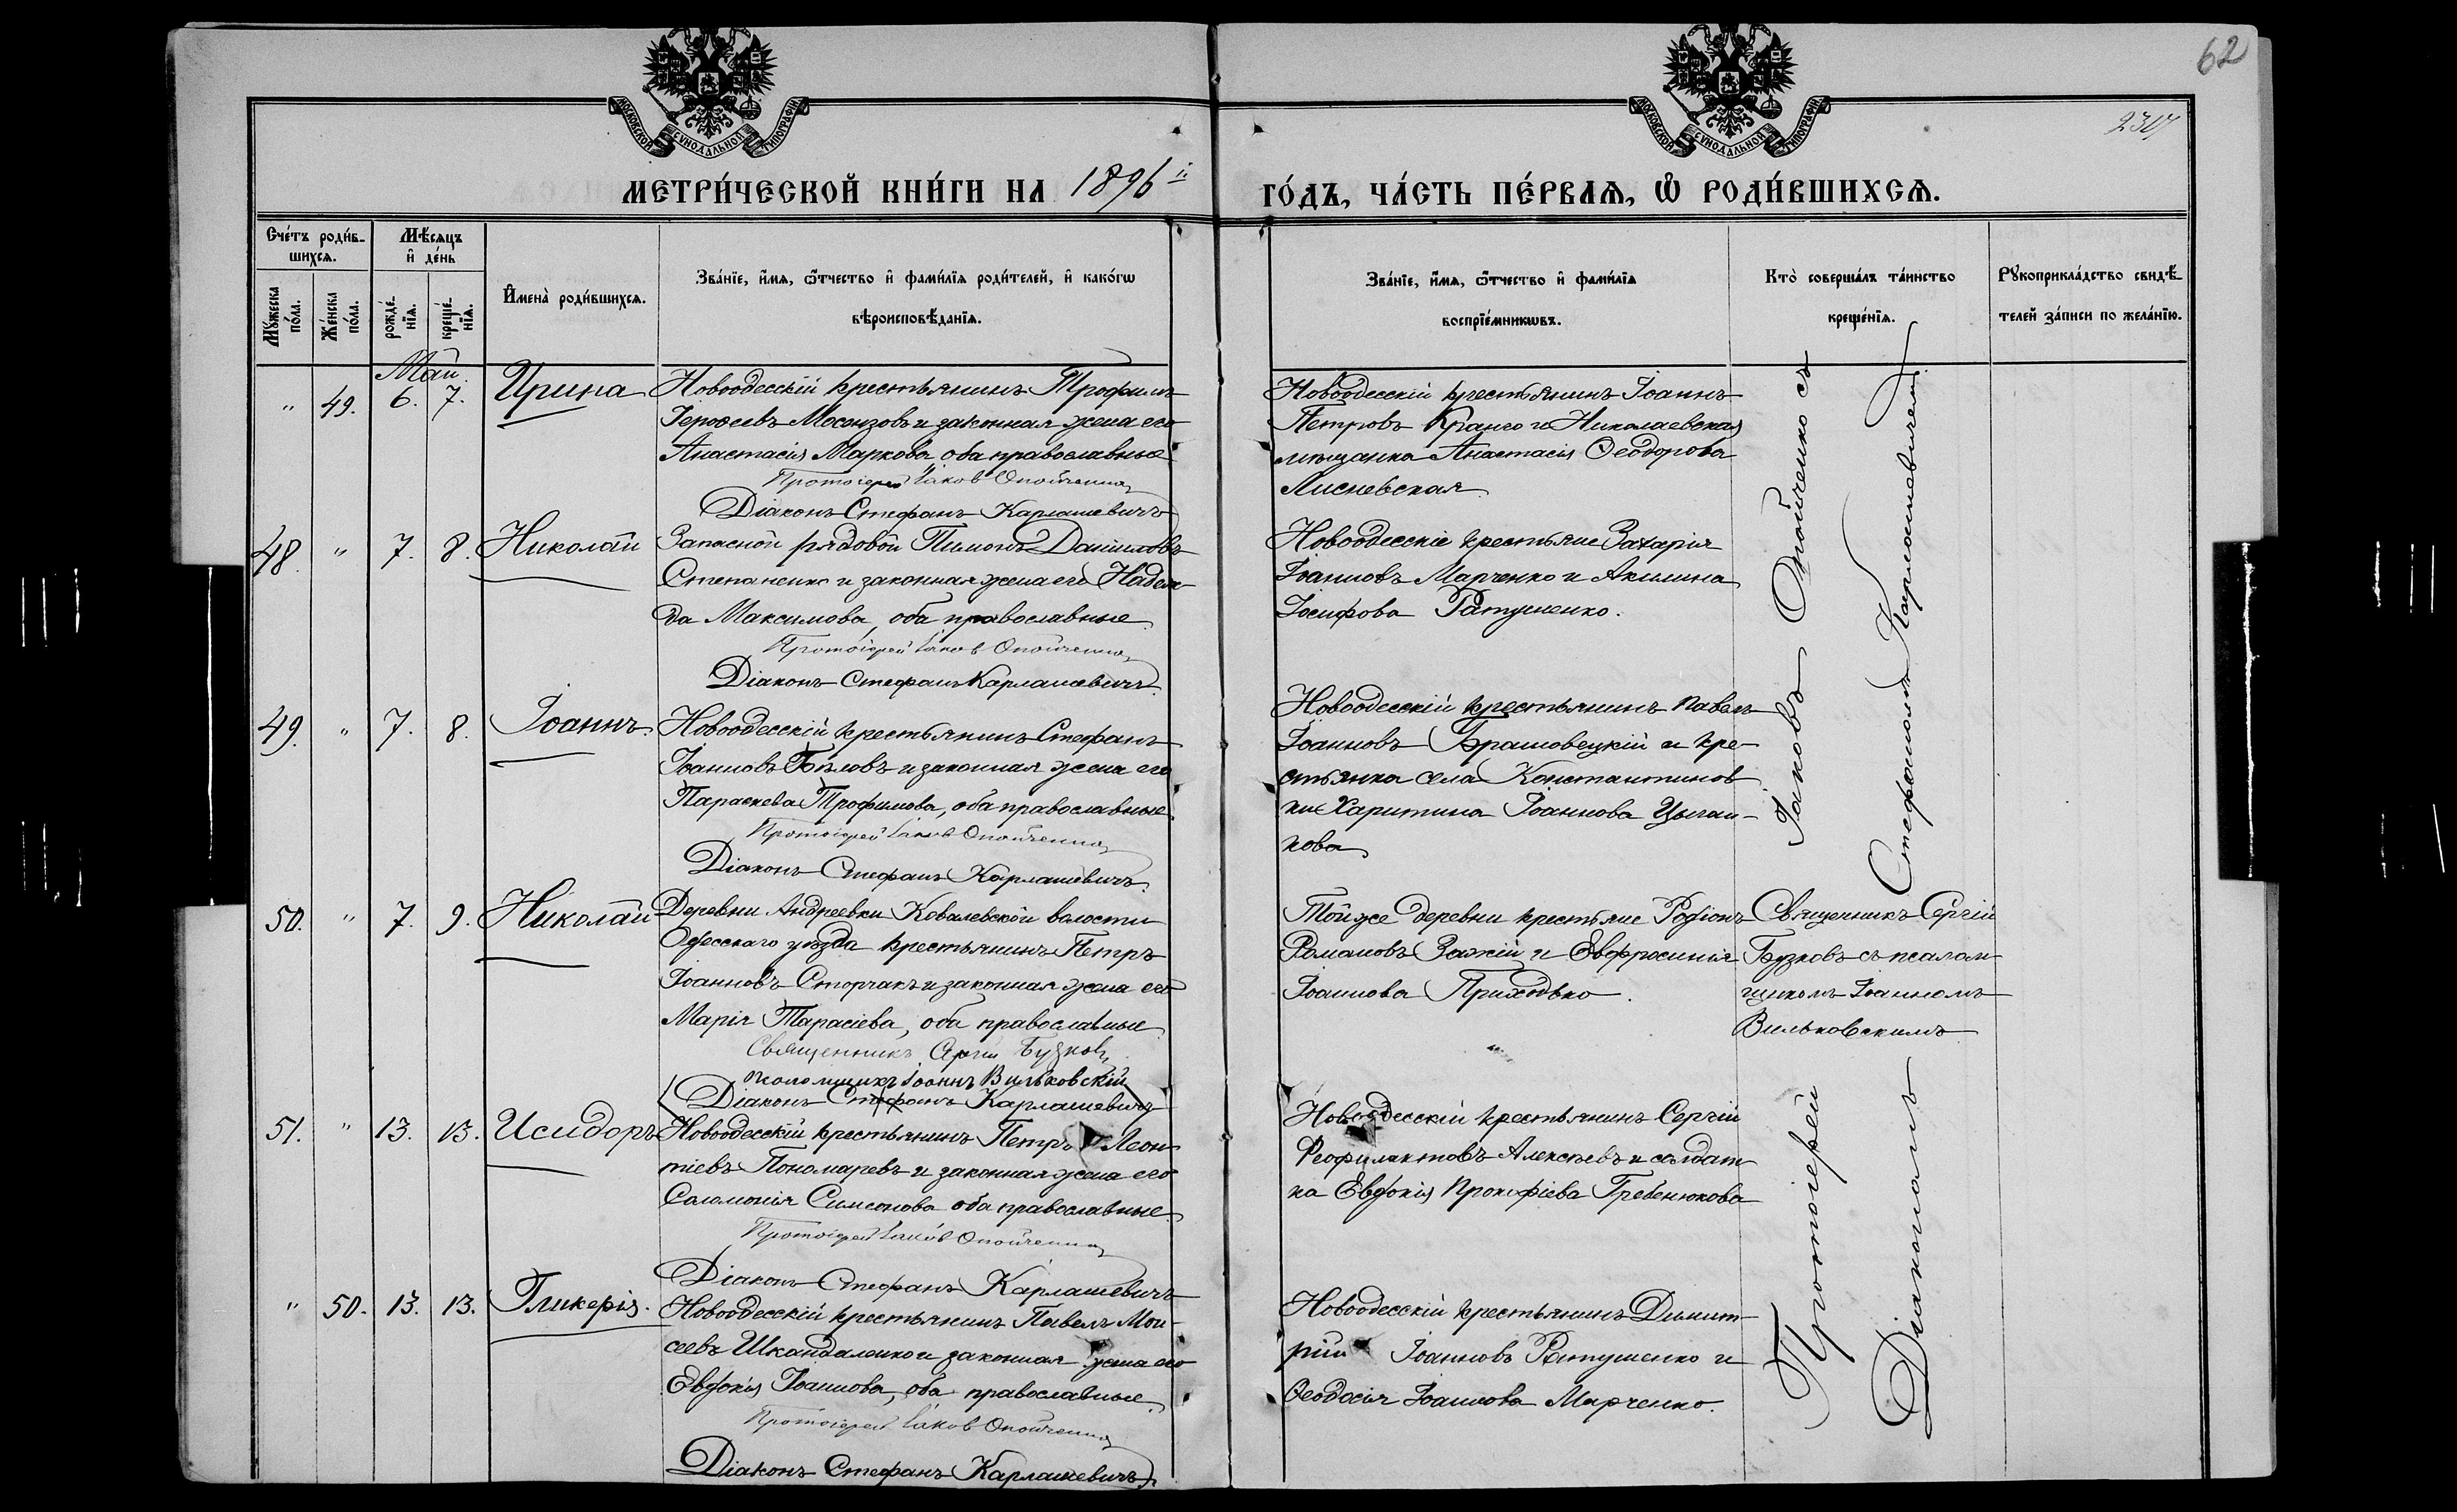 62
2307
МОСКОВСКОЙ СУНОДАЛЬНОЙ ТИПОГРАФІИ
МОСКОВСКОЙ СУНОДАЛЬНОЙ ТИПОГРАФІИ
МЕТРИ́ЧЕСКОЙ КНИ́ГИ НА 1896й ГО́ДЪ, ЧА́СТЬ ПЕ́РВАѦ, Ѡ РОДИ́ВШИХСѦ.
Сче́тъ роди́в-
шихсѧ.
Мѣ́сѧцъ
и҆ де́нь
Мꙋ́жеска по́ла.
Же́нска по́ла.
рожде́-
нїѧ.
креще́-
нїѧ.
И҆мена̀ роди́вшихсѧ.
Зва́нїе, и҆́мѧ, ѻ҆́тчество и҆ фами́лїѧ роди́телей, и҆ како́гѡ
вѣроисповѣ́данїѧ.
Зва́нїе, и҆́мѧ, ѻ҆́тчество и҆ фами́лїѧ
воспрїе́мникѡвъ.
Кто̀ соверша́лъ та́инство
креще́нїѧ.
Рꙋкоприкла́дство свидѣ́-
телей за́писи по жела́нїю.
Май.
" 49. 6. 7. Ирина
Новоодесскій крестьянинъ Трофимъ
Іероѳеевъ и законная жена его
Анастасія Маркова, оба православные
Протоіерей Іаковъ Опойченко
Діаконъ Стефанъ Карлашевичъ
Новоодесскій крестьянинъ Іоаннъ
Петровъ Кранго и Николаевская
мѣщанка Анастасія Ѳеодорова
Лисневская
48. " 7. 8. Николай
Запасной рядовой Пимонъ Даниловъ
Степаненко и законная жена его Надеж-
да Максимова, оба православные
Протоіерей Іаковъ Опойченко
Діаконъ Стефанъ Карлашевичъ.
Новоодесскіе крестьяне Захарія
Іоанновъ Марченко и Акилина
Іосифова Ратушенко.
49. " 7. 8. Іоаннъ.
Новоодесскій крестьянинъ Стефанъ
Іоанновъ Бѣловъ и законная жена его
Параскева Трофимова, оба православные.
Протоіерей Іаковъ Опойченко
Діаконъ Стефанъ Карлашевичъ.
Новоодесскій крестьянинъ Павелъ
Іоанновъ Брашовецкій и кре-
стьянка села Константинов
ки Харитина Іоаннова Цыган-
кова
50. " 7. 9. Николай
Деревни Андреевки Ковалевской волости
Одесскаго уѣзда крестьянинъ Петръ
Іоанновъ Сторчакъ и законная жена его
Марія Тарасіева, оба православные
Священникъ Сергій Бузковъ,
псаломщикъ Іоаннъ Вильковскій
Діаконъ Стефанъ Карлашевичъ
Той же деревни крестьяне Родіонъ
Романовъ Зажій и Евфросинія
Іоаннова Приходько.
Священникъ Сергій
Бузковъ съ псалом-
щикомъ Іоанномъ
Вильковскимъ
51. " 13. 13. Исидоръ
Новоодесскій крестьянинъ Петръ Леон-
тіевъ Пономаревъ и законная жена его
Саломонія Симеонова оба православные
Протоіерей Іаковъ Опойченко
Діаконъ Стефанъ Карлашевичъ
Новоодесскій крестьянинъ Сергій
Феофилактовъ Алексѣевъ и солдат
ка Евдокія Прокофіева Гребенюкова
" 50. 13. 13. Гликерія.
Новоодесскій крестьянинъ Павелъ Мои-
сеевъ Шкандаленко и законная жена его
Евдокія Іоаннова, оба православные.
Протоіерей Іаковъ Опойченко
Діаконъ Стефанъ Карлашевичъ.
Новоодесскій крестьянинъ Димит-
рій Іоанновъ Ратушенко и
Ѳеодосія Іоаннова Марченко.
Протоіерей Іаковъ Опойченко съ
Діакономъ Стефаномъ Карлашевичемъ.